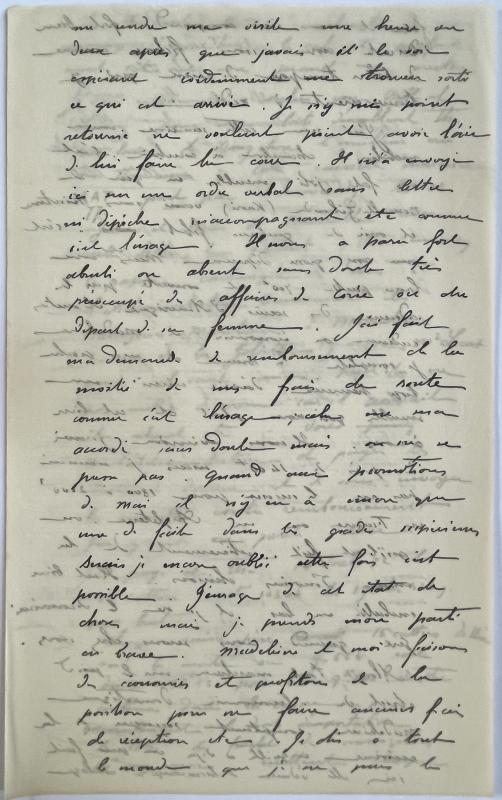 me rendre ma visite une heure ou
deux après que j'avais été le voir
espérant évidemment me trouver sorti
ce qui est arrivé. Je n'y suis point
retourné ne voulant point avoir l'air
de lui faire la cour. Il m'a envoyé
ici sur un ordre verbal sans lettre
ni dépêche m'accompagnant etc comme
c'est l'usage. Il nous a paru fort
abruti ou absent sans doute très
préoccupé des affaires de Corée ou du
départ de sa femme. J'ai fait
ma demande de remboursement de la
moitié de mes frais de route
comme c'est l'usage cela me sera
accordé sans doute mais on ne se
presse pas. Quand aux promotions
de mai il n'y en a encore que
une de faite dans les grades supérieurs
serais je encore oublié cette fois c'est
possible. J'enrage de cet état de
choses mais je prends mon parti
en brave. Madeleine et moi faisons
des économies et profitons de la
position pour ne faire aucuns frais
de réception etc. Je dis à tout
le monde que je ne puis le